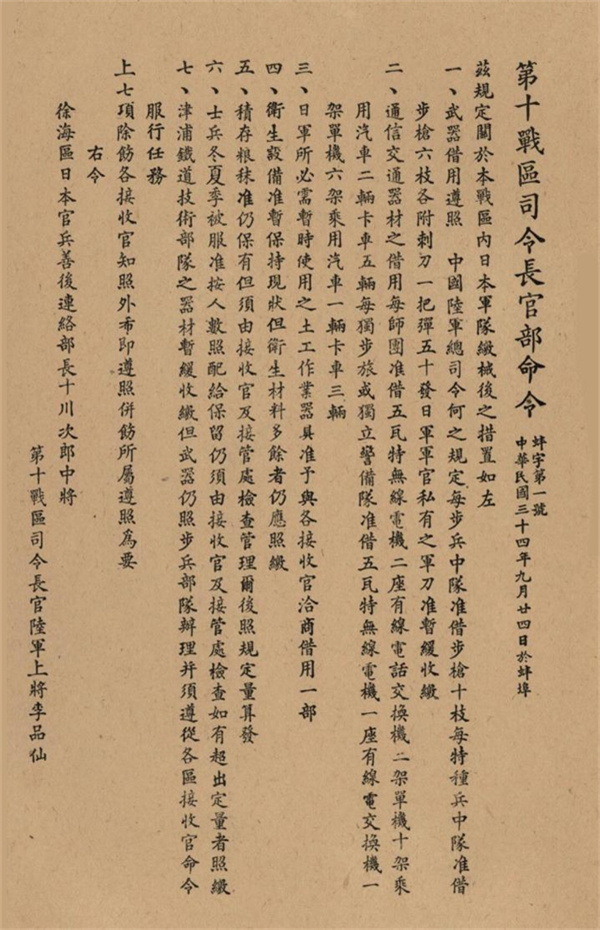 第十戰區司令長官部命令
蚌字第一號
中華民國三十四年九月廿四日於蚌埠
茲規定關於本戰區內日本軍隊繳械後之措置如左
一、武器借用遵照　中國陸軍總司令何之規定每步兵中隊准借步槍十枝每特種兵中隊准借
步槍六枝各附刺刀一把彈五十發日軍軍官私有之軍刀准暫緩收繳
二、通信交通器材之借用每師團准借五瓦特無線電機二座有線電話交換機二架單機十架乘
用汽車二輛卡車五輛每獨步旅或獨立警備隊准借五瓦特無線電機一座有線電交換機一
架單機六架乘用汽車一輛卡車三輛
三、日軍所必需暫時使用之土工作業器具准予與各接收官洽商借用一部
四、衛生設備准暫保持現狀但衛生材料多餘者仍應照繳
五、積存粮秣准仍保有但須由接收官及接管處檢查管理爾後照規定量算發
六、士兵冬夏季被服准按人數照配給保留仍須由接收官及接管處檢查如有超出定量者照繳
七、津浦鐵道技術部隊之器材暫緩收繳但武器仍照步兵部隊辦理并須遵從各區接收官命令
服行任務
上七項除飭各接收官知照外布即遵照併飭所屬遵照為要
右令
徐海區日本官兵善後連絡部長十川次郎中將
第十戰區司令長官陸軍上將李品仙